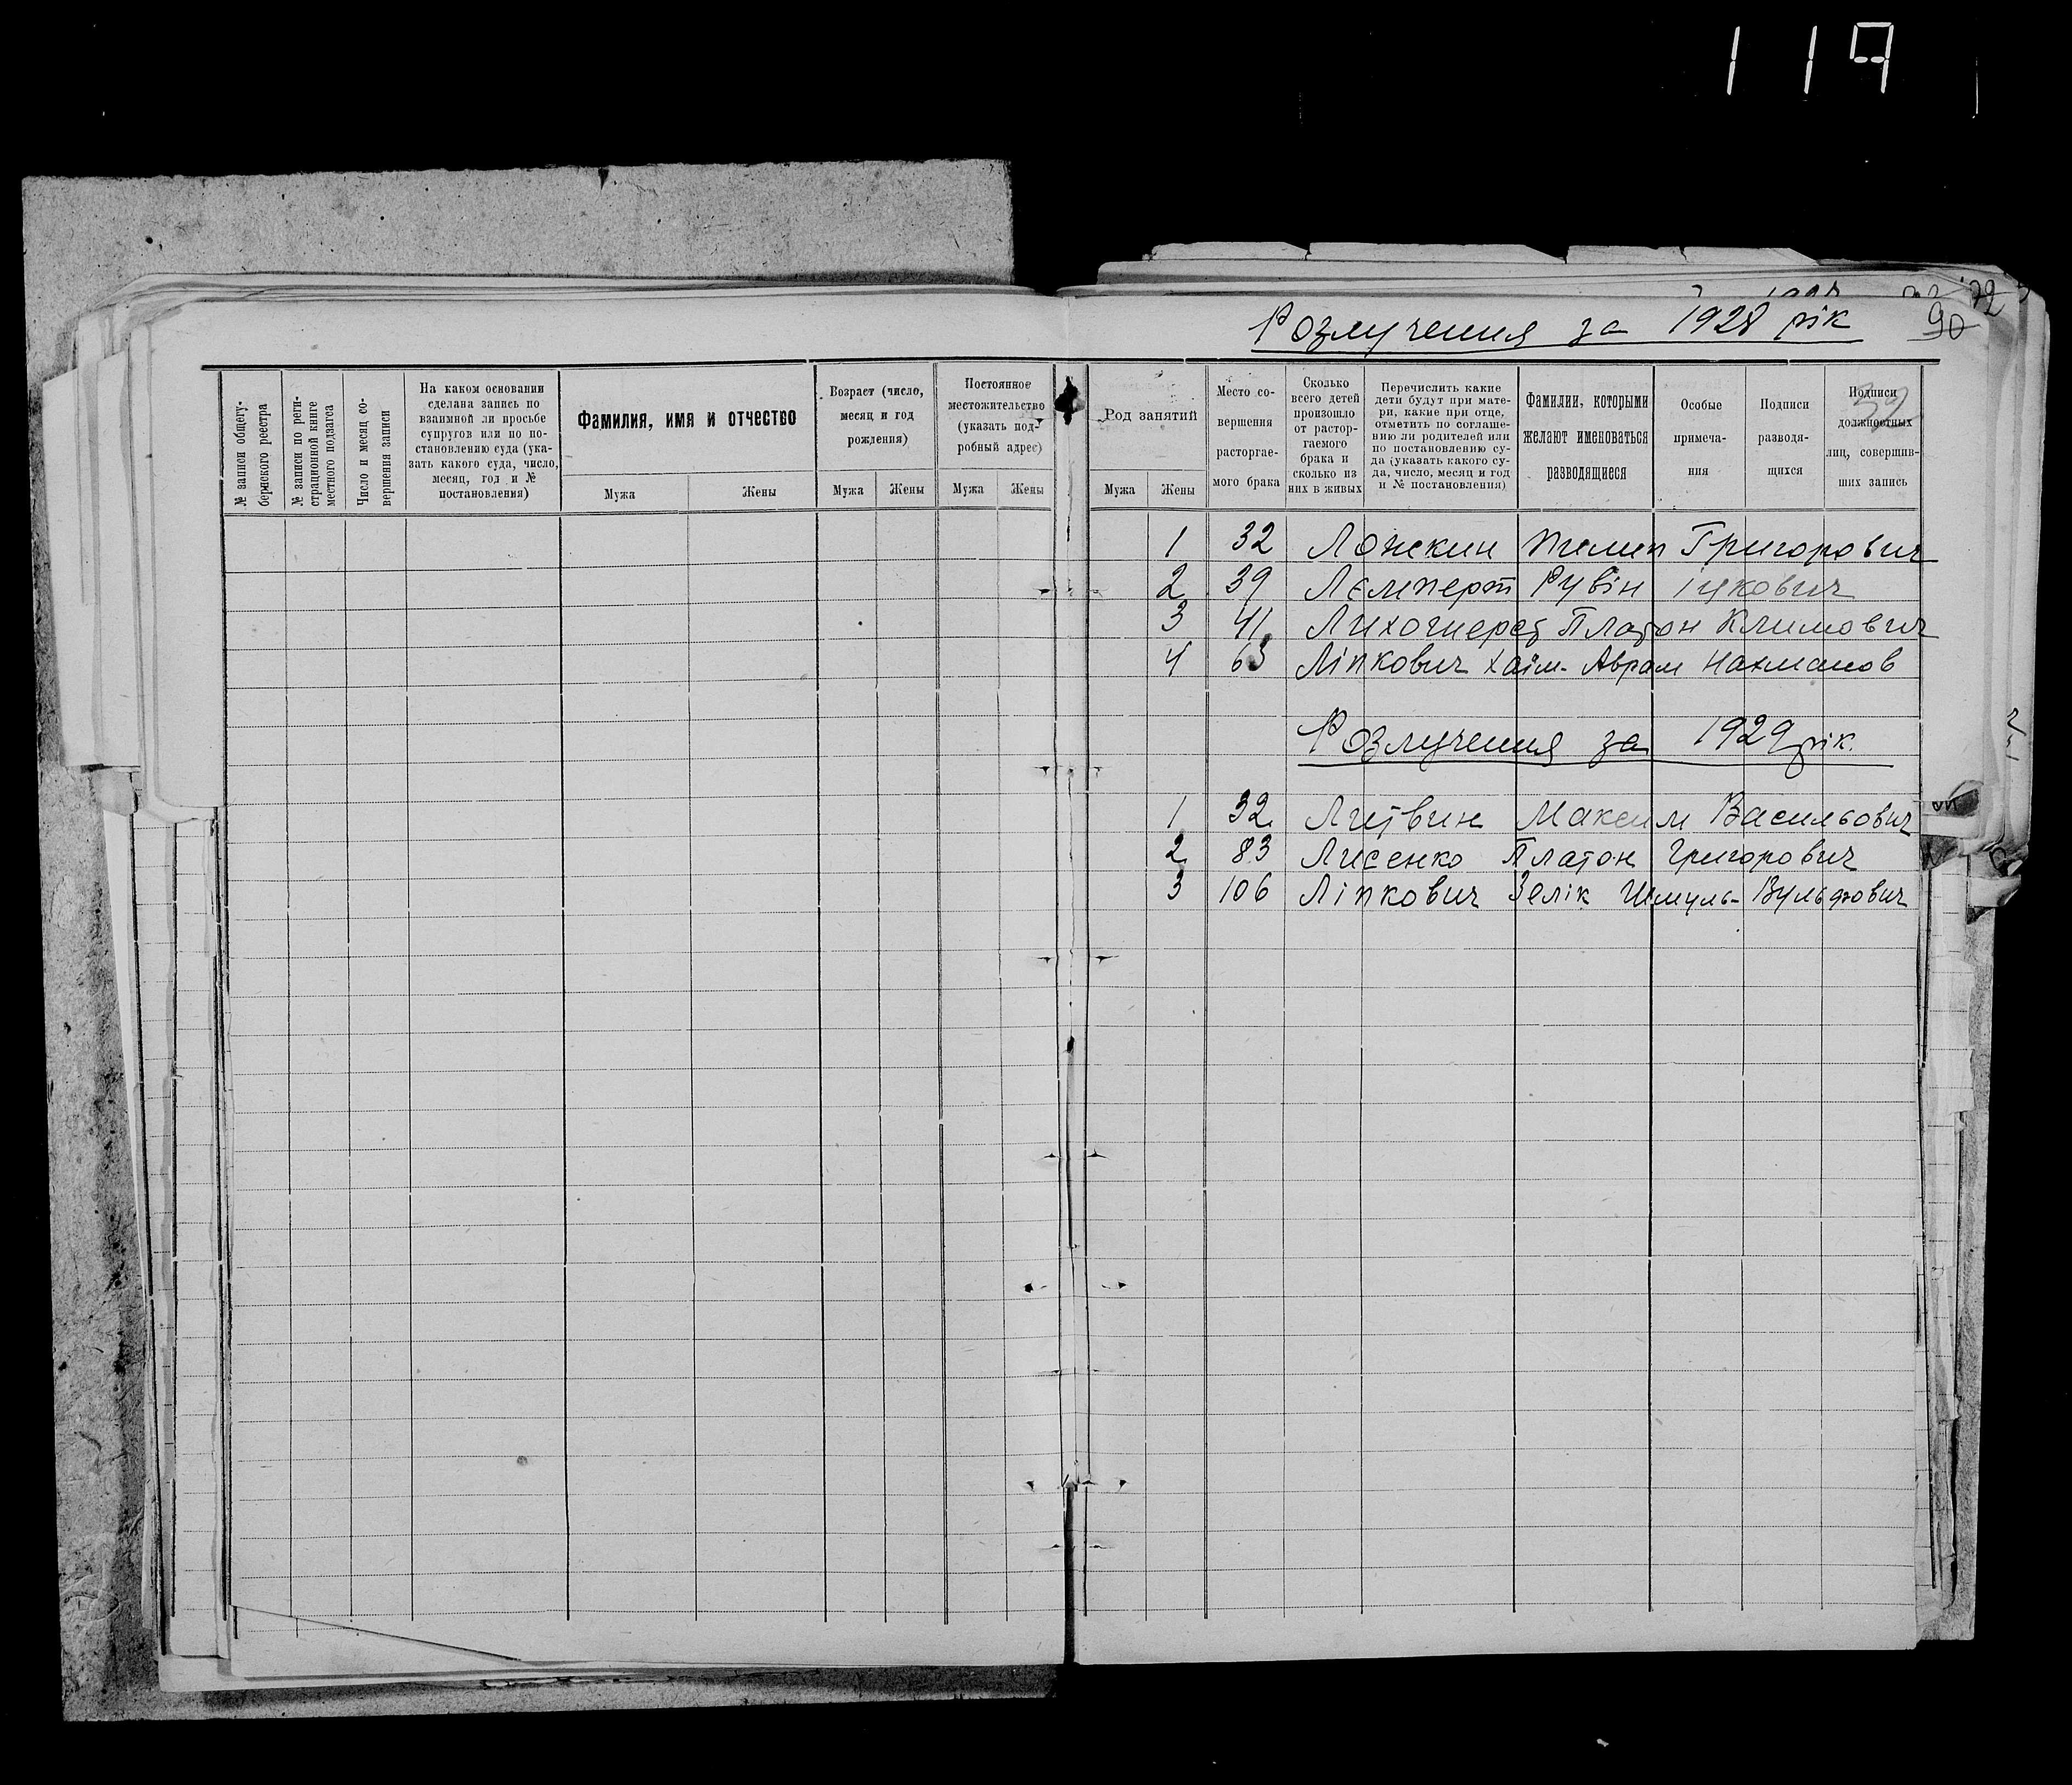 119
Розлучения за 1928 рік
90
№ записи общегу-
бернского реестра
№ записи по реги-
страционной книге
местного подзагса
Число и месяц со-
вершения записи
На каком основании
сделана запись по
взаимной ли просьбе
супругов или по по-
становлению суда (ука-
зать какого суда, число,
месяц, год и №
постановления)
Фамилия, имя и отчество
Мужа Жены
Возраст (число,
месяц и год
рождения)
Мужа Жены
Постоянное
местожительство
(указать под-
робный адрес)
Мужа Жены
Род занятий
Мужа Жены
Место со-
вершения
расторгае-
мого брака
Сколько
всего детей
произошло
от растор-
гаемого
брака и
сколько из
них в живых
Перечислить какие
дети будут при мате-
ри, какие при отце,
отметить по соглаше-
нию ли родителей или
по постановлению су-
да (указать какого су-
да, число, месяц и год
и № постановления)
Фамилии, которыми
желают именоваться
разводящиеся
Особые
примеча-
ния
Подписи
разводя-
щихся
Подписи
должностных
лиц, совершив-
ших запись
1 32 Ложкин Пилип Григорович
2 39 Лємперт Рувін Іцкович
3 41 Платон Климович
4 63 Ліпкович Хаїм-Аврам Нахманов
Розлучения за 1929 рік.
1 32 Литвин Максим Васильович
2 83 Лисенко Платон Григорович
3 106 Ліпкович Зелік Шмуль-Вульфович